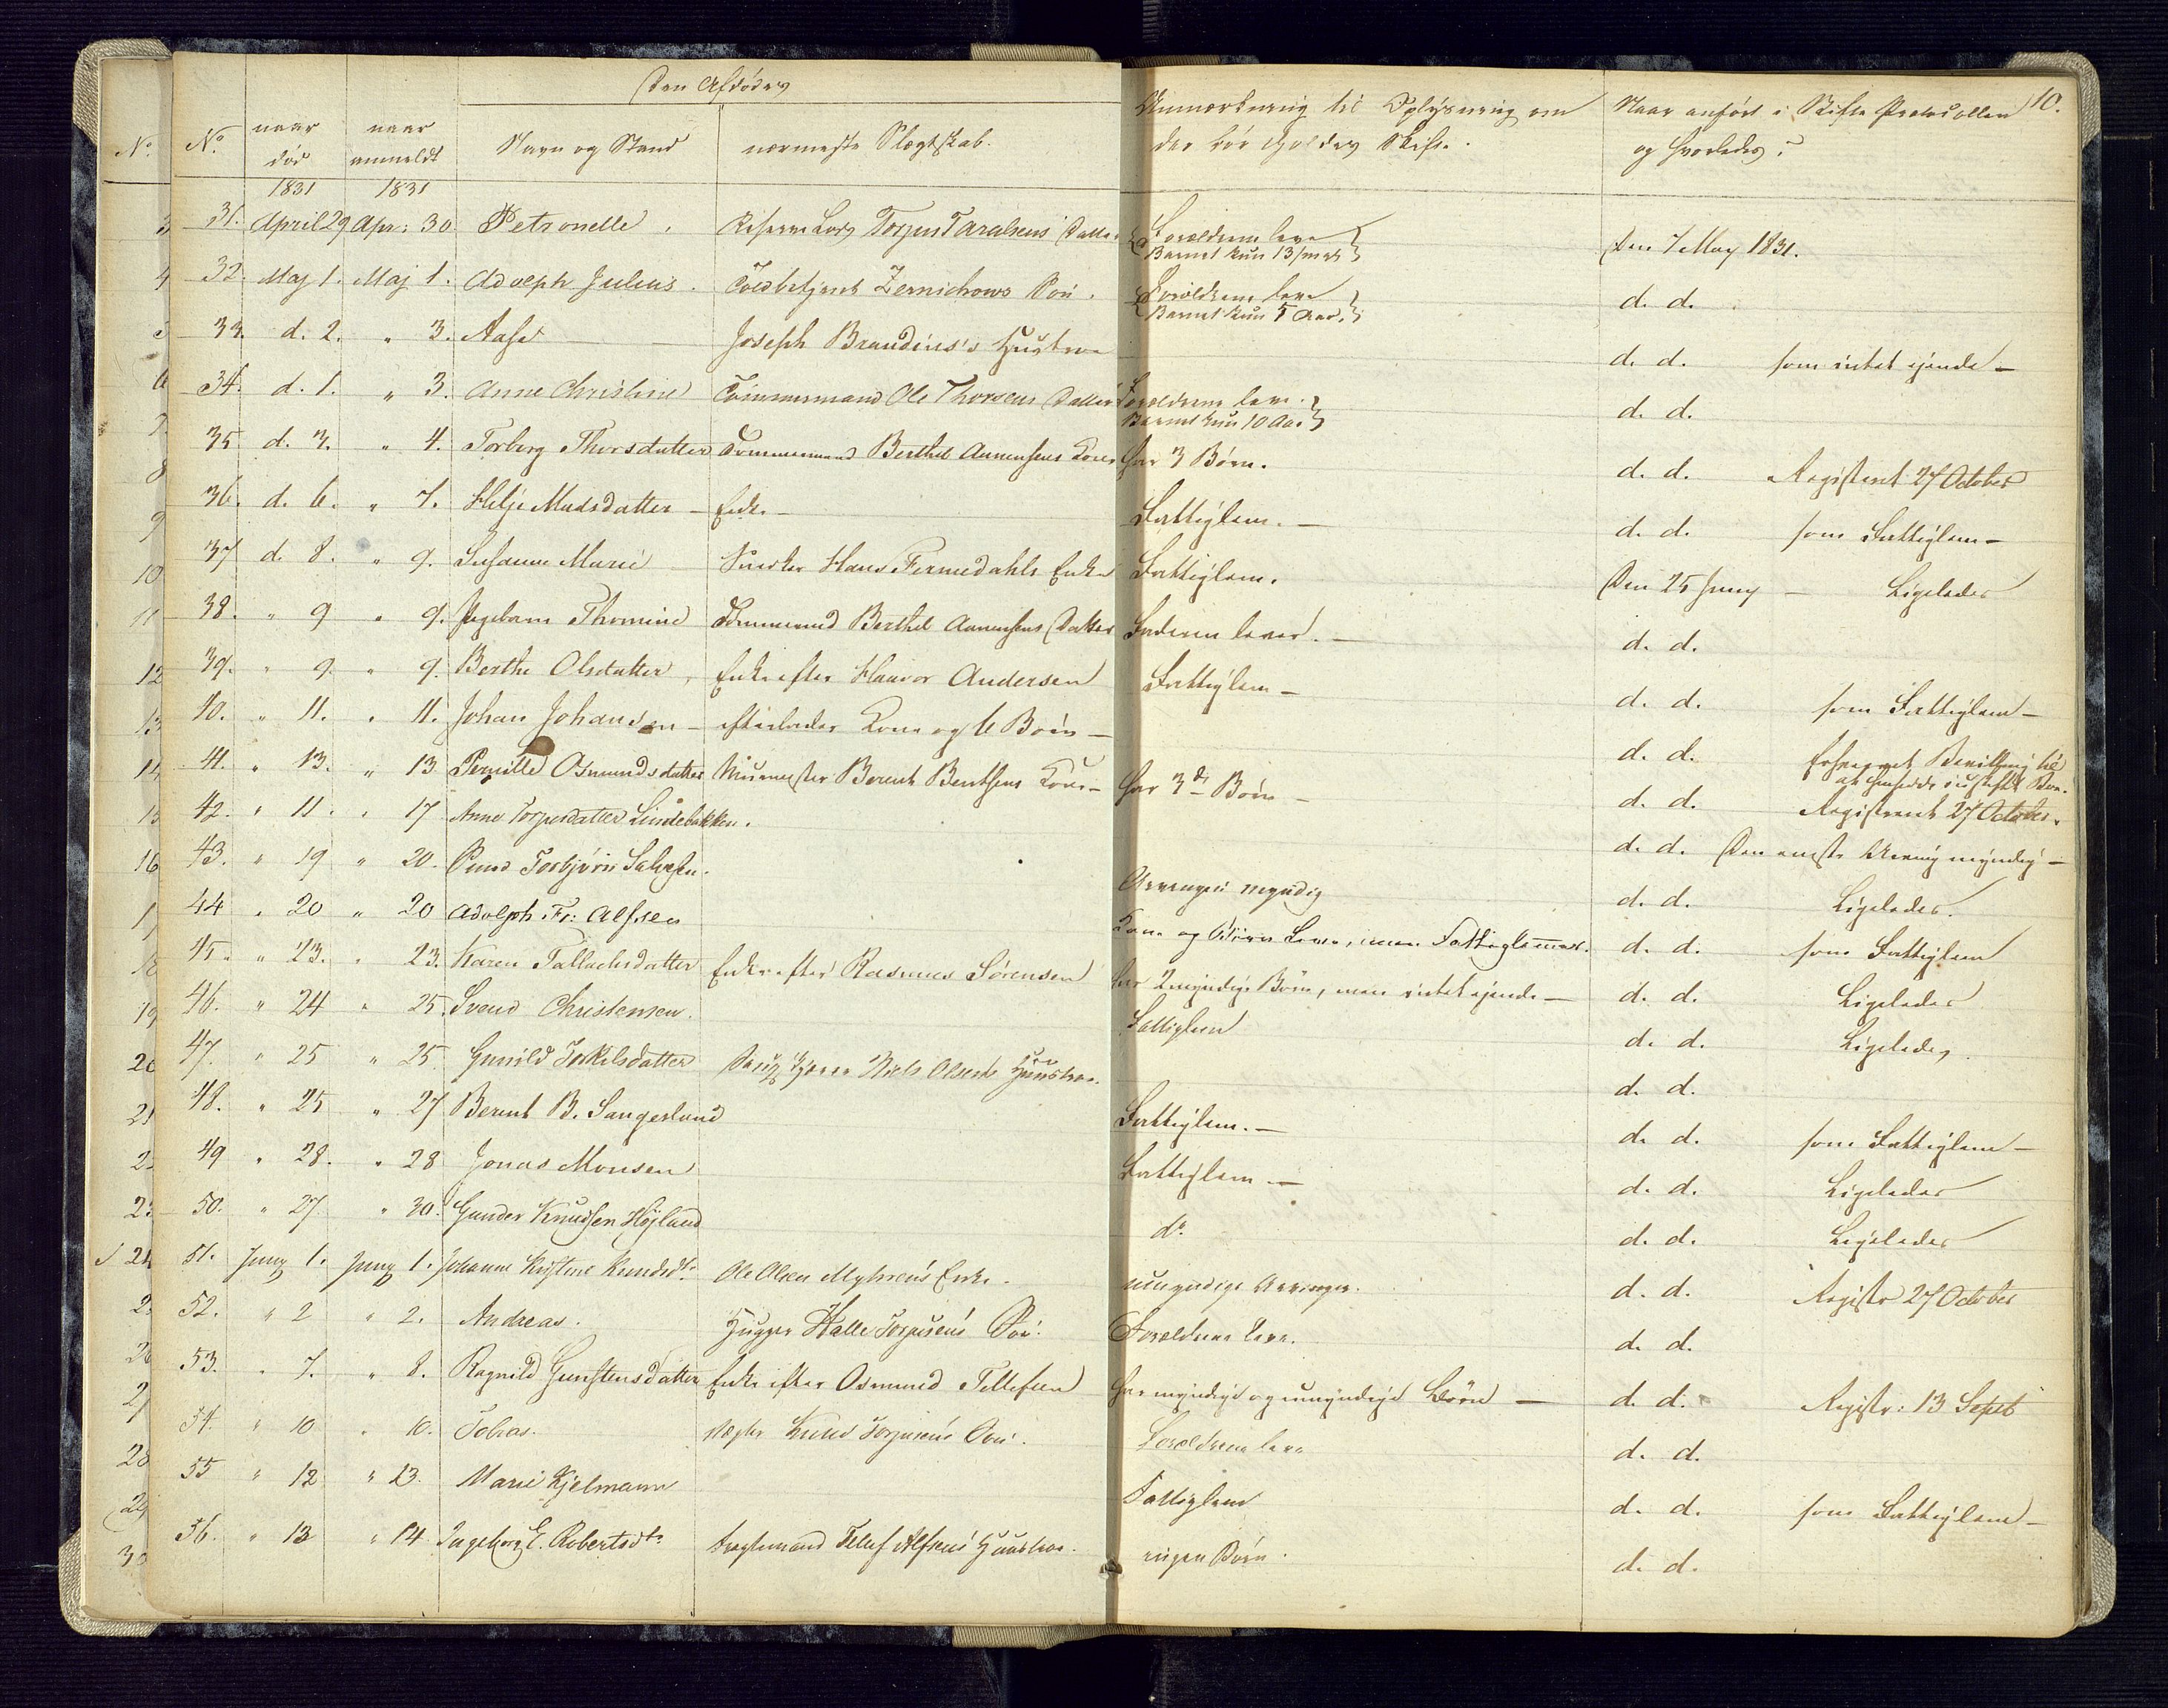 Den Afdödes
10.
No. No. naar död naar anmeldt Navn og Stand nærmeste Slægtskab. Anmærkning til Oplysning om der bör holdes Skifte. Naar anfört i Skifte Protocollen og hvorledes?
1831 1831
31. April 29 Apr: 30 Petronelle. Torjus Taralsens Datter Forældrene leve Barnet kun 13/mdr Den 7 May 1831.
32. Maj 1. Maj 1. Adolph Julius. Toldbetjent Zernichows Sön. Forældrene leve Barnet kun 5 Aar. d. d.
33. d. 2. " 3. Aase — Joseph Brandius's Hustroe d. d. som intet ejende —
34. d. 1. " 3. Anne Christine Tömmermand Ole Thorsens Datter Forældrene leve. Barnet kun 10 Aar d. d.
35 d. 3. " 4. Torberg Thorsdatter Tömmermand Berthel Annensens Kone har 3 Börn. d. d. Registreret 27 October
36. d. 6. " 7. Helje Madsdatter — Enke — Fattiglem. — d. d. som Fattiglem —
37 d. 8. " 9. Susanne Marie Snedker Hans Fermedahls Enke Fattiglem. Den 25 Juny — Ligeledes
38. " 9 " 9. Ingebore Thomine Tömmermand Berthel Annensens Datter Faderen lever. — d. d.
39. " 9. " 9. Berthe Olsdatter, Enke efter Haavor Andersen Fattiglem — d. d. som Fattiglem —
40. " 11. " 11. Johan Johansen — efterlader Kone og 6 Börn — d. d. Bevilling til at hensidde i uskiftet Boe.
41. " 13. " 13 Pernille Osmundsdatter Muurmester Berent Bentsens Kone — har 3de Börn — d. d. Registreret 27 October.
42. " 11. " 17 Anne Torjusdatter Lindebakken. d. d. Den eneste Arving myndig —
43. " 19 " 20. Torbjörn Salvesen. Arvingen myndig d. d. Ligeledes.
44 " 20 " 20 Adolph Fr: Alfsen Kone og Börn leve, men Fattiglemmer. d. d. som Fattiglem
45. " 23. " 23. Karen Tallachsdatter Enke efter Rasmus Sörensen har 2 myndige Börn, men intet ejende — d. d. Ligeledes
46. " 24 " 25. Svend Christensen. Fattiglem d. d. Ligeledes.
47. " 25 " 25. Gunild Torkilsdatter Niels Olsens Huustroe. d. d.
48. " 25 " 27 Berent B. Sangesland Fattiglem. — d. d. som Fattiglem —
49 " 28. " 28 Jonas Monsen Fattiglem. — d. d. Ligeledes
50. " 27 " 30. Gunder Knudsen Höjland do. d. d. Ligeledes
51. Juny 1. Juny 1. Johanne Kristine Knudsdtr. Ole Olsen Myhrens Enke. umyndige Arvinger. d. d. Registr 27 October
52. " 2 " 2. Andreas. Halle Torjusens Sön. Forældrene leve. d. d.
53. " 7. " 8. Ragnild Gunstensdatter Enke efter Osmund Tellefsen har myndige og umyndige Börn — d. d. Registr: 13 Septb
54. " 10 " 10. Tobias. Knud Torjusens Sön. Forældrene leve d. d.
55 " 12 " 13. Marie Kjelmann Fattiglem d. d. som Fattiglem —
56. " 13 " 14 Ingeborg E. Robertsdtr. Fragtemand Tellef Alfsens Huustroe. ingen Börn. d. d.